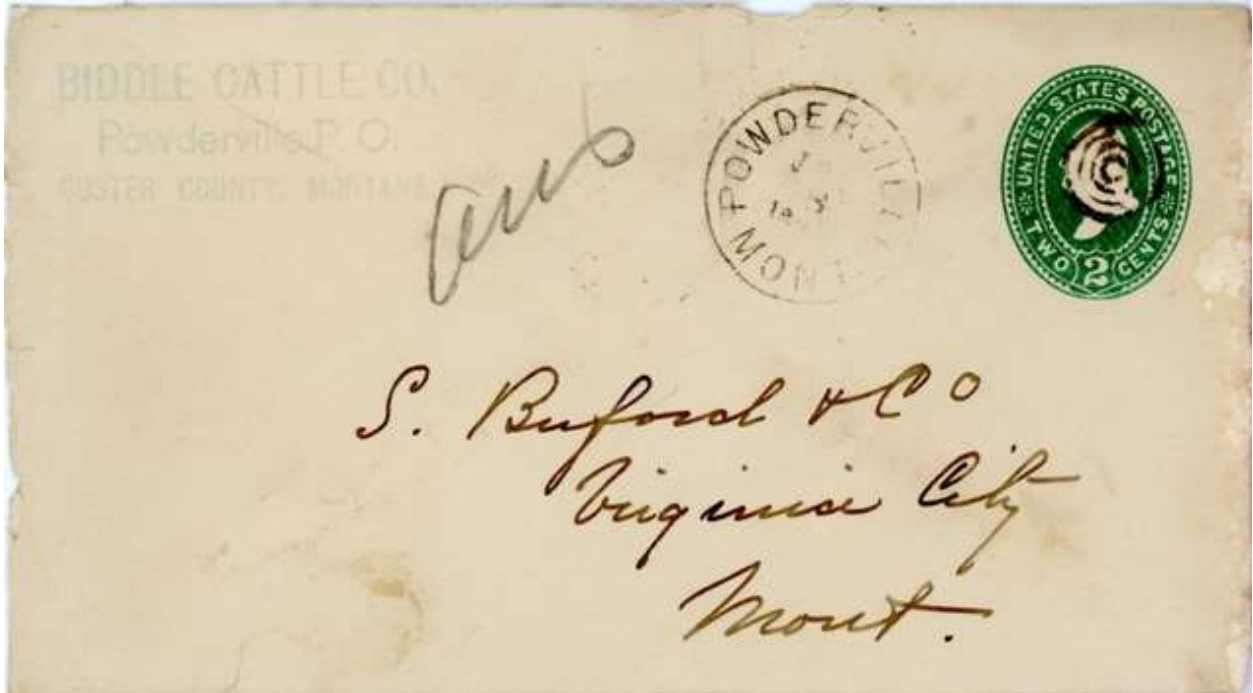 BIDDLE CATTLE CO.
Powderville P. O.
CUSTER COUNTY, MONTANA
ans
POWDERVILLE MONT
UNITED STATES POSTAGE
TWO 2 CENTS
S. Buford & Co
Virginia City
Mont.